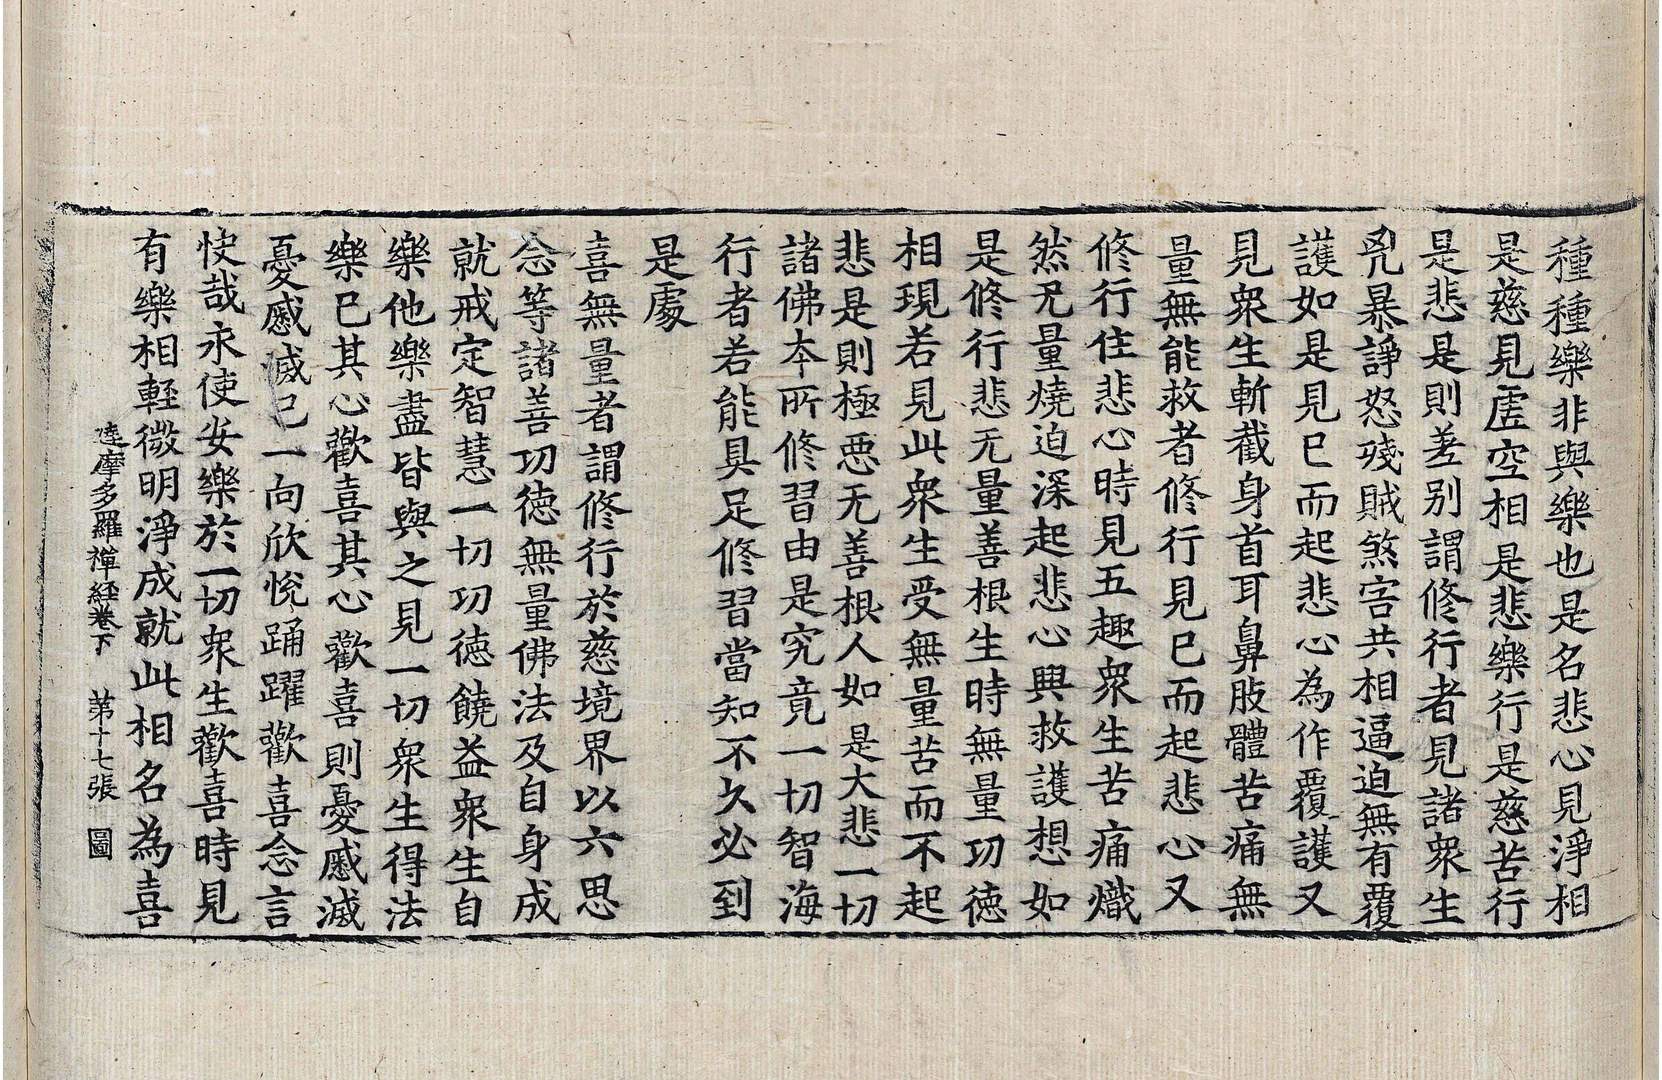 種種樂非與樂也是名悲心見淨相
是慈見虛空相是悲樂行是慈苦行
是悲是則差别謂修行者見諸衆生
兇暴諍怒殘賊煞害共相逼迫無有覆
護如是見已而起悲心為作覆護又
見衆生斬截身首耳鼻肢體苦痛無
量無能救者修行見已而起悲心又
修行住悲心時見五趣衆生苦痛熾
然无量燒迫深起悲心興救護想如
是修行悲无量善根生時無量功德
相現若見此衆生受無量苦而不起
悲是則極惡无善根人如是大悲一切
諸佛本所修習由是究竟一切智海
行者若能具足修習當知不久必到
是處
喜無量者謂修行於慈境界以六思
念等諸善功德無量佛法及自身成
就戒定智慧一切功德饒益衆生自
樂他樂盡皆與之見一切衆生得法
樂已其心歡喜其心歡喜則憂慼滅
憂慼滅已一向欣悅踊躍歡喜念言
快哉永使安樂於一切衆生歡喜時見
有樂相輕微明淨成就此相名為喜
達摩多羅禪経卷下 第十七張 圖